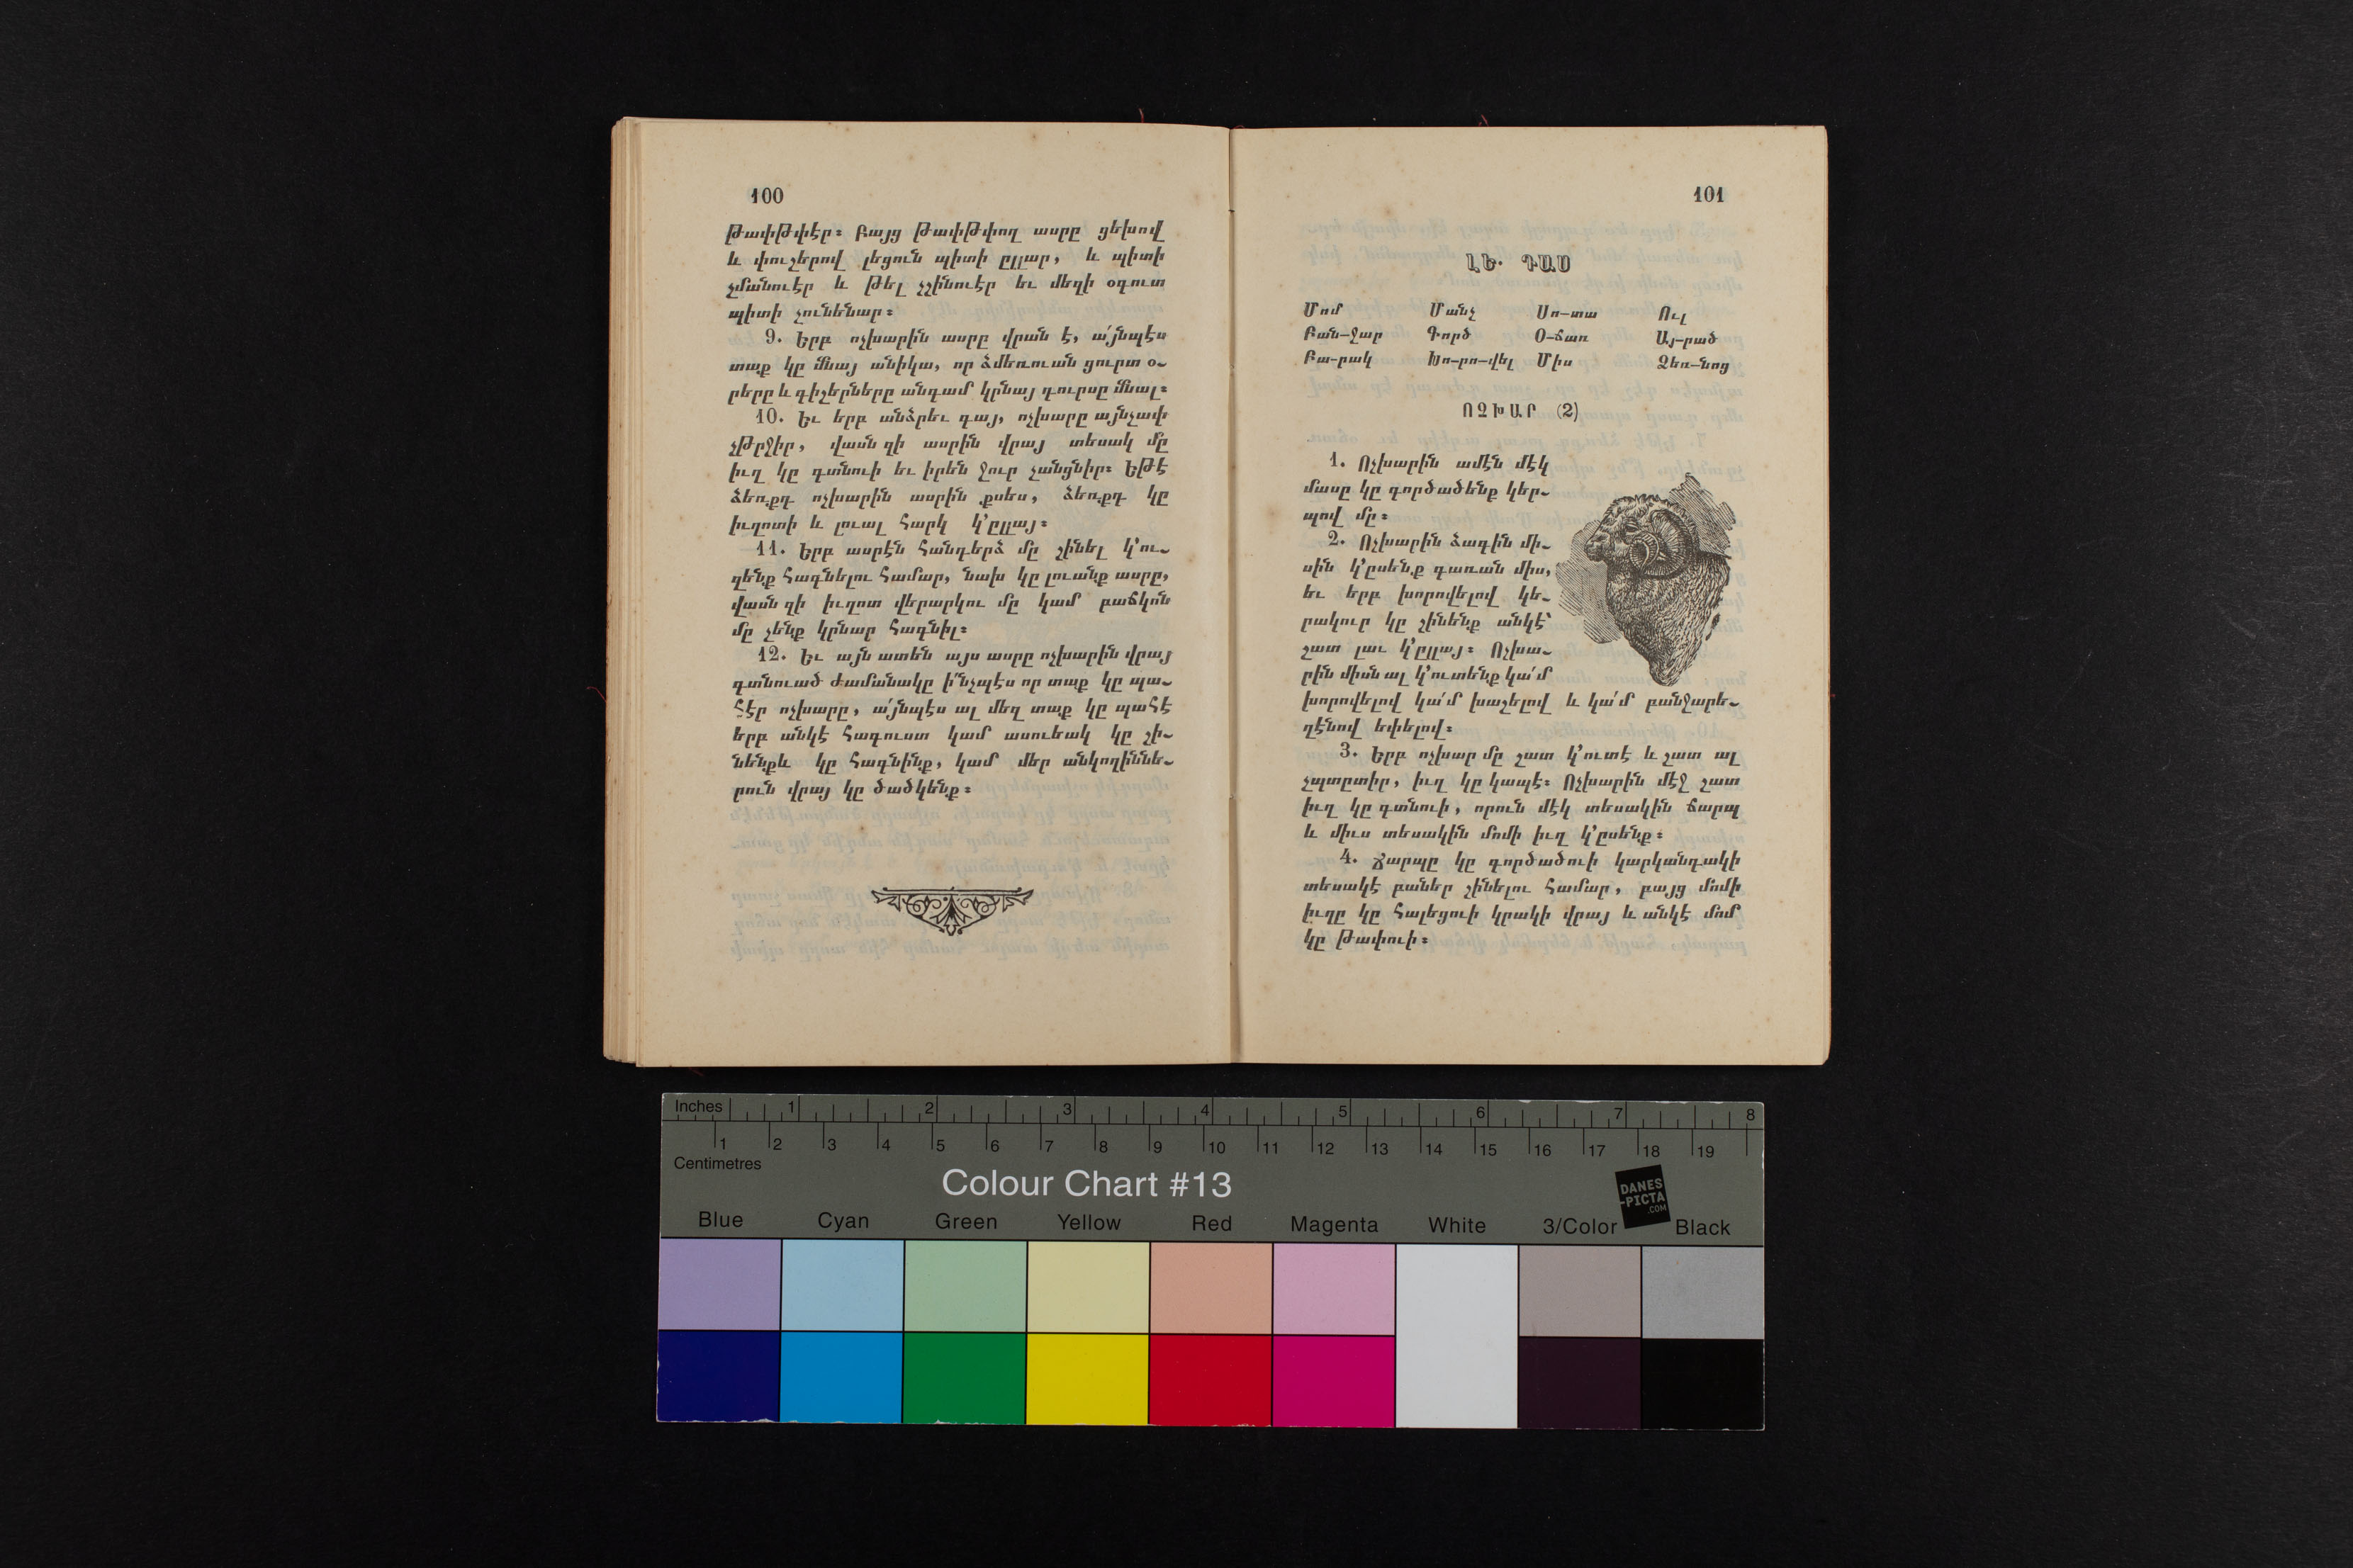 100
թափթփէր։ Բայց թափթփող ասրը ցեխով
և փուշերով լեցուն պիտի ըլլար, և պիտի
չմանուէր և թել չշինուէր եւ մեղի օգուտ
պիտի չունենար։
9. Երբ ոչխարին ասրը վրան է, ա՛յնպէս
տաք կը մնայ անիկա, որ ձմեռուան ցուրտ օ–
րերը և գիշերները անգամ կրնայ դուրսը մնալ։
10. Եւ երբ անձրեւ գայ, ոչխարը այնչափ
չթրջիր, վասն զի ասրին վրայ տեսակ մը
իւղ կը գտնուի եւ իրեն ջուր չանցնիր։ Եթէ
ձեռքդ ոչխարին ասրին քսես, ձեռքդ կը
իւղոտի և լուալ հարկ կ՚ըլլայ։
11. Երբ ասրէն հանդերձ մը շինել կ՚ու–
զենք հագնելու համար, նախ կը լուանք ասրը,
վասն զի իւղոտ վերարկու մը կամ բաճկոն
մը չենք կրնար հագնիլ։
12. Եւ այն ատեն այս ասրը ոչխարին վրայ
գտնուած ժամանակը ի՛նչպէս որ տաք կը պա–
հէր ոչխարը, ա՛յնպէս ալ մեզ տաք կը պահէ
երբ անկէ հագուստ կամ ասուեակ կը շի–
նենքև կը հագնինք, կամ մեր անկողիննե–
րուն վրայ կը ծածկենք։
101
ԼԵ. ԴԱՍ
Մոմ Մանչ Սո–տա Ուլ
Բան–ջար Գործ Օ–ճառ Այ–րած
Բա–րակ Խո–րո–վել Միս Ձեռ–նոց
ՈՉԽԱՐ (2)
1. Ոչխարին ամէն մէկ
մասը կը գործածենք կեր–
պով մը։
2. Ոչխարին ձագին մի–
սին կ՚ըսենք գառան միս,
եւ երբ խորովելով կե–
րակուր կը շինենք անկէ՝
շատ լաւ կ՚ըլլայ։ Ոչխա–
րին միսն ալ կ՚ուտենք կա՛մ
խորովելով կա՛մ խաշելով և կա՛մ բանջարե–
ղէնով եփելով։
3. Երբ ոչխար մը շատ կ՚ուտէ և շատ ալ
չպտըտիր, իւղ կը կապէ։ Ոչխարին մէջ շատ
իւղ կը գտնուի, որուն մէկ տեսակին ճարպ
և միւս տեսակին մոմի իւղ կ՚ըսենք։
4. Ճարպը կը գործածուի կարկանդակի
տեսակէ բաներ շինելու համար, բայց մոմի
իւղը կը հալեցուի կրակի վրայ և անկէ մոմ
կը թափուի։
Inches 1 2 3 4 5 6 7 8
1 2 3 4 5 6 7 8 9 10 11 12 13 14 15 16 17 18 19
Centimetres
Colour Chart #13
DANES
-PICTA
.COM
Blue Cyan Green Yellow Red Magenta White 3/Color Black